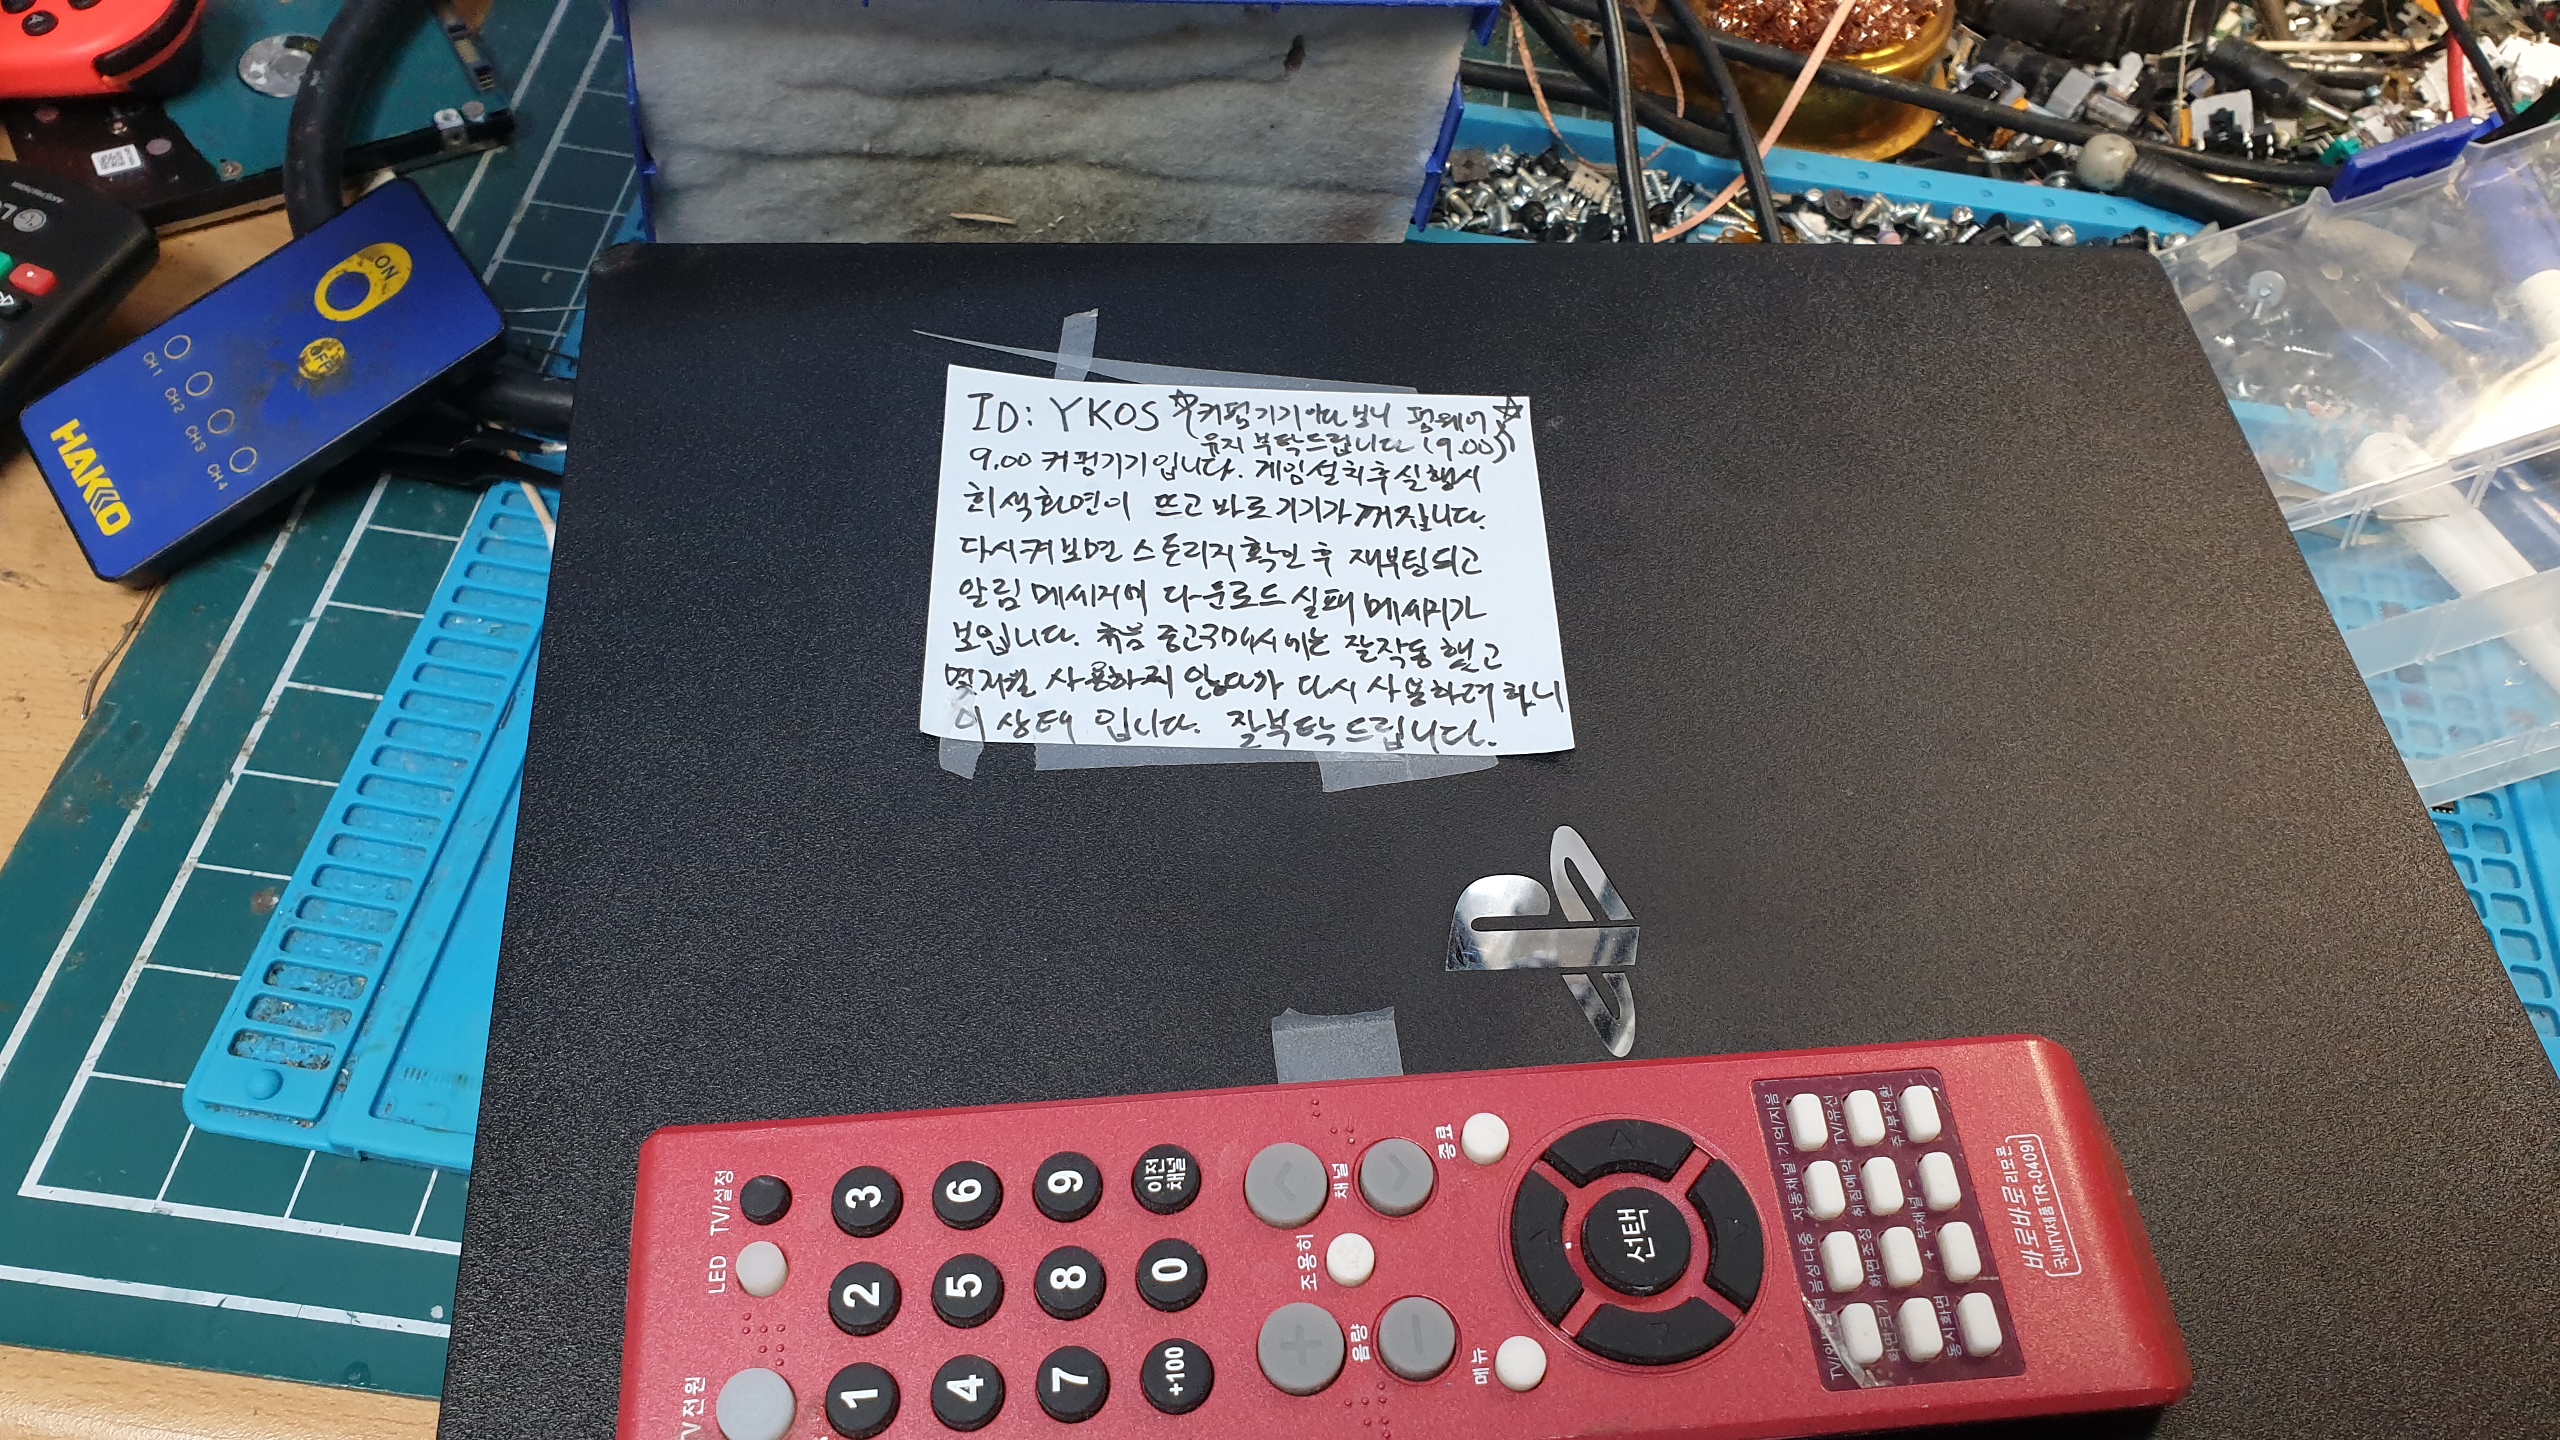 ID: YKOS ☆(커펌기기이다보니 펌웨어☆
유지 부탁드립니다 (9.00))
9.00 커펌기기입니다. 게임설치후실행시
회색화면이 뜨고 바로 기기가 꺼집니다.
다시켜보면 스토리지확인 후 재부팅되고
알림 메세지에 다운로드 실패 메세지가
보입니다. 처음 중고구매시에는 잘작동했고
몇개월 사용하지 않다가 다시 사용하려 하니
이상태 입니다. 잘부탁드립니다.
ON
OFF
CH 1
CH 2
CH 3
CH 4
HAKKO
TV/설정
LED
TV전원
3
6
9
이전
채널
2
5
8
0
1
4
7
+100
채널
조용히
음량
종료
선택
메뉴
기억/지움
TV/유선
주/부전환
자동채널
취침예약
부채널 -
음성다중
화면조정
+
화면크기
동시화면
바로바로리모콘
국내TV제품 TR-0409i